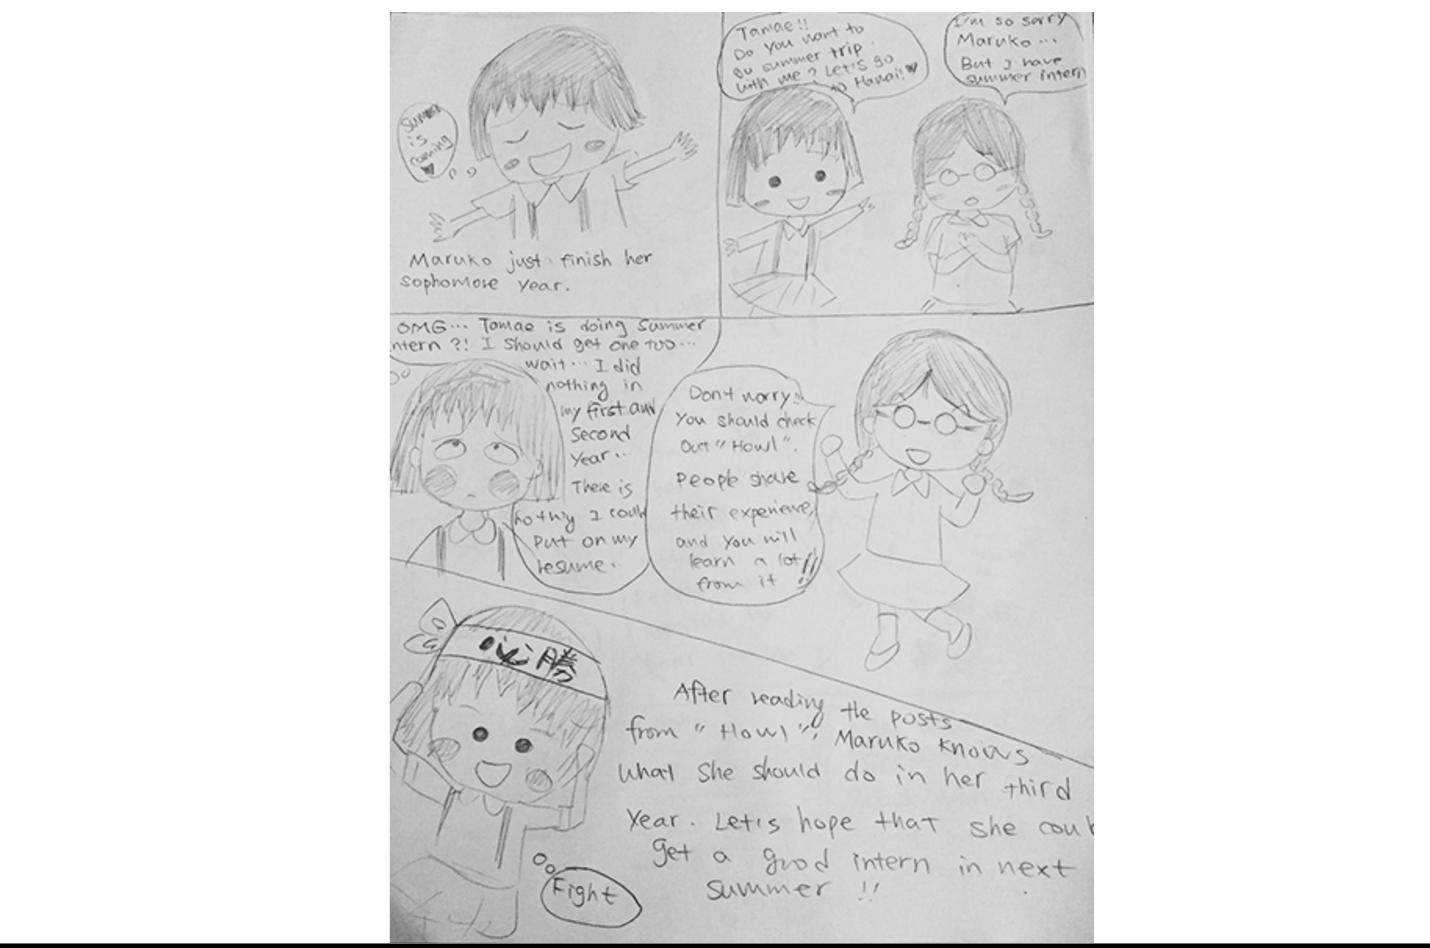 Summer
is
coming
Maruko just finish her
sophomore year.
Tamae!!
Do you want to
go summer trip
with me? Let's go
to Hanai!!
I'm so sorry
Maruko...
But I have
summer intern
OMG... Tamae is doing summer
ntern?! I should get one too...
wait... I did
nothing in
my first and
second
year...
There is
nothiy I could
put on my
resume..
Don't worry!!
You should check
out "Howl".
People share
their experience,
and you will
learn a lot
from it!!
必勝
After reading the posts
from "Howl", Maruko knows
what she should do in her third
year. Let's hope that she coul
get a good intern in next
summer!!
Fight